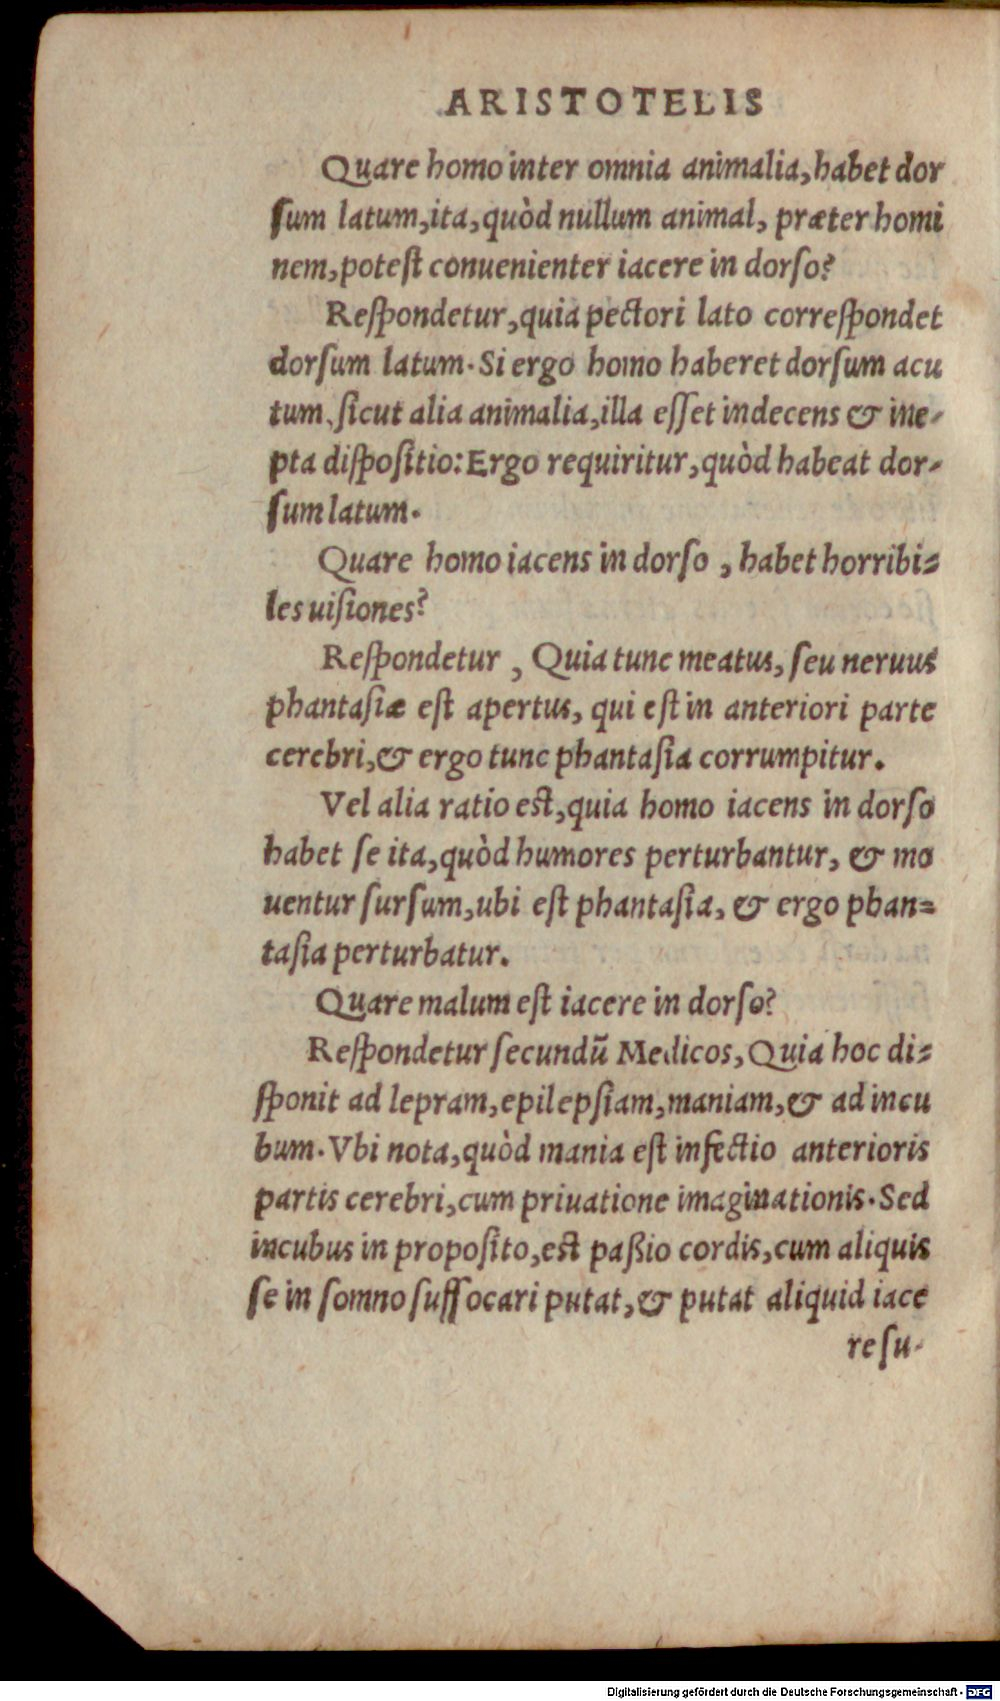 ARISTOTELIS
Quare homo inter omnia animalia, habet dor
sum latum, ita, quòd nullum animal, præter homi
nem, potest conuenienter iacere in dorso?
Respondetur, quia pectori lato correspondet
dorsum latum. Si ergo homo haberet dorsum acu
tum, sicut alia animalia, illa esset indecens & ine-
pta dispositio: Ergo requiritur, quòd habeat dor-
sum latum.
Quare homo iacens in dorso, habet horribi-
les uisiones?
Respondetur, Quia tunc meatus, seu neruus
phantasiæ est apertus, qui est in anteriori parte
cerebri, & ergo tunc phantasia corrumpitur.
Vel alia ratio est, quia homo iacens in dorso
habet se ita, quòd humores perturbantur, & mo
uentur sursum, ubi est phantasia, & ergo phan-
tasia perturbatur.
Quare malum est iacere in dorso?
Respondetur secundũ Medicos, Quia hoc di-
sponit ad lepram, epilepsiam, maniam, & ad incu
bum. Vbi nota, quòd mania est infectio anterioris
partis cerebri, cum priuatione imaginationis. Sed
incubus in proposito, est paßio cordis, cum aliquis
se in somno suffocari putat, & putat aliquid iace
re su-
Digitalisierung gefördert durch die Deutsche Forschungsgemeinschaft - DFG